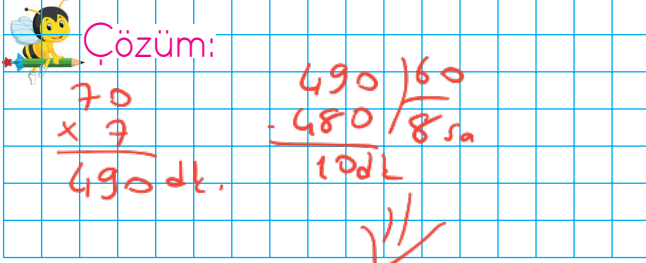 Çözüm:
70
x 7
490 dk.
490 | 60
- 480 | 8 sa
10 dk